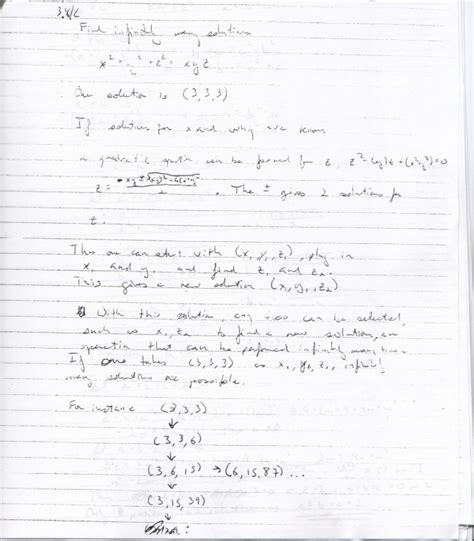 3.
Find infinitely many solutions
x² + y² + z² = xyz
One solution is (3,3,3)
If solutions for x and y are known
a quadratic equation can be formed for z, z² - (xy)z + (x²+y²)=0
z = xy ± √(xy)² - 4(x²+y²) / 2 . The ± gives 2 solutions for
z.
Thus one can start with (x₁, y₁, z₁), plug in
x₁ and y₁ and find z₁ and z₂.
This gives a new solution (x₁, y₁, z₂)
With this solution, any two can be selected,
such as x₁, z₂ to find a new solution, an
operation that can be performed infinitely many times.
If one takes (3,3,3) as x₁, y₁, z₁, infinitely
many solutions are possible.
For instance (3,3,3)
↓
(3,3,6)
↓
(3,6,15) → (6,15,87) ...
↓
(3,15,39)
↓